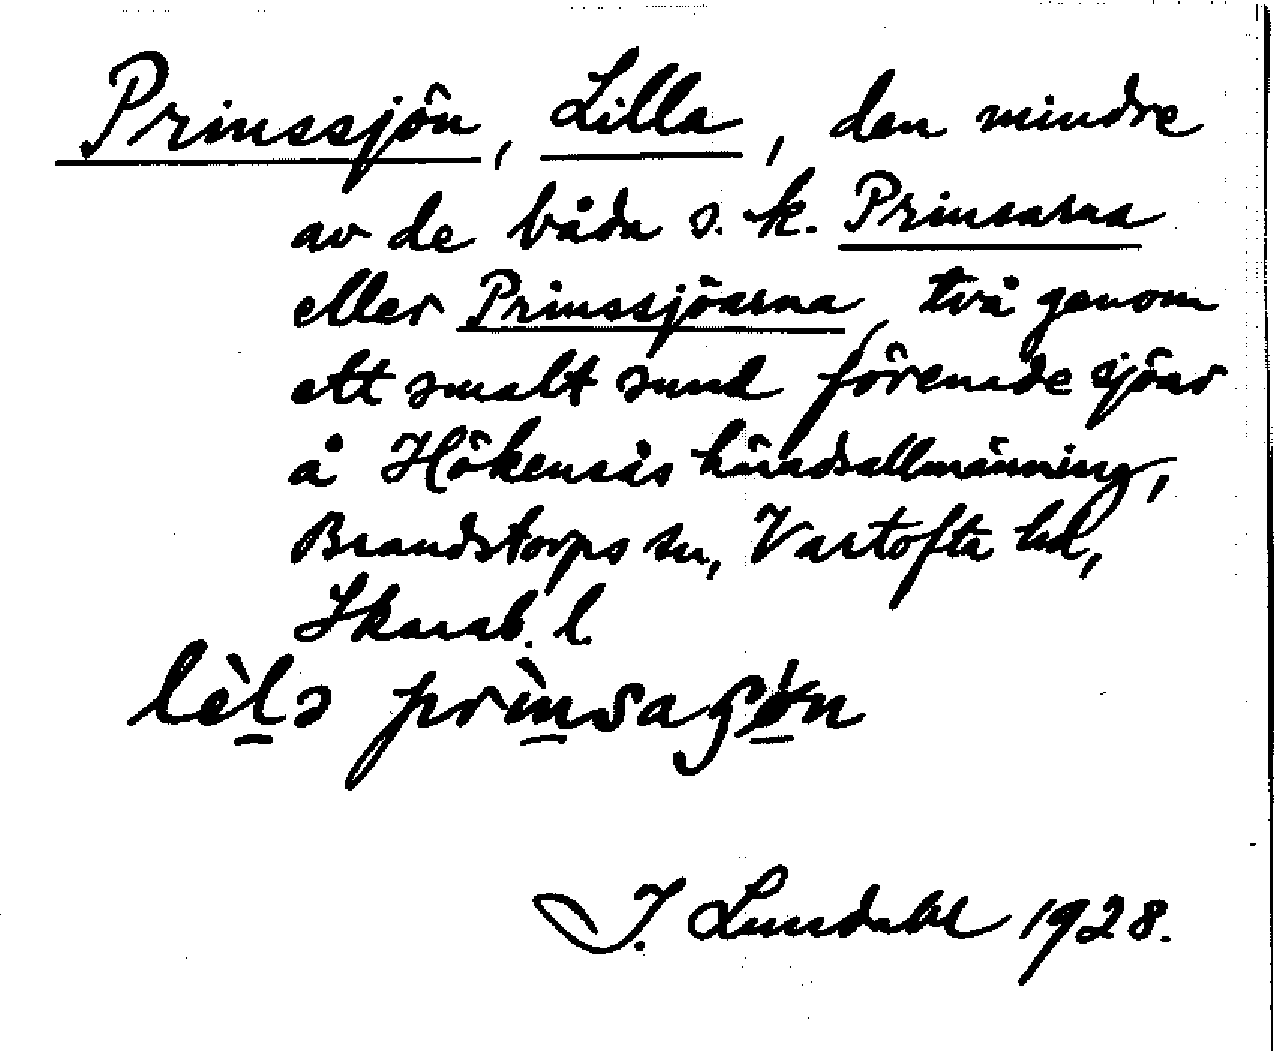 Prinssjön, Lilla, den mindre
av de båda s.k. Prinsarna
eller Prinssjöarna, två genom
ett smalt sund förenade sjöar
å Hökensås häradsallmänning,
Brandstorps sn, Vartofta hd,
Skarab. l.
J. Lundahl 1928.